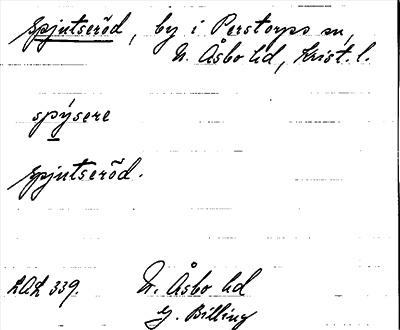 Spjutseröd, by i Perstorps sn,
N. Åsbo hd, Krist. l.
spýsere
Spjutseröd.
LAL 339. N. Åsbo hd
G. Billing